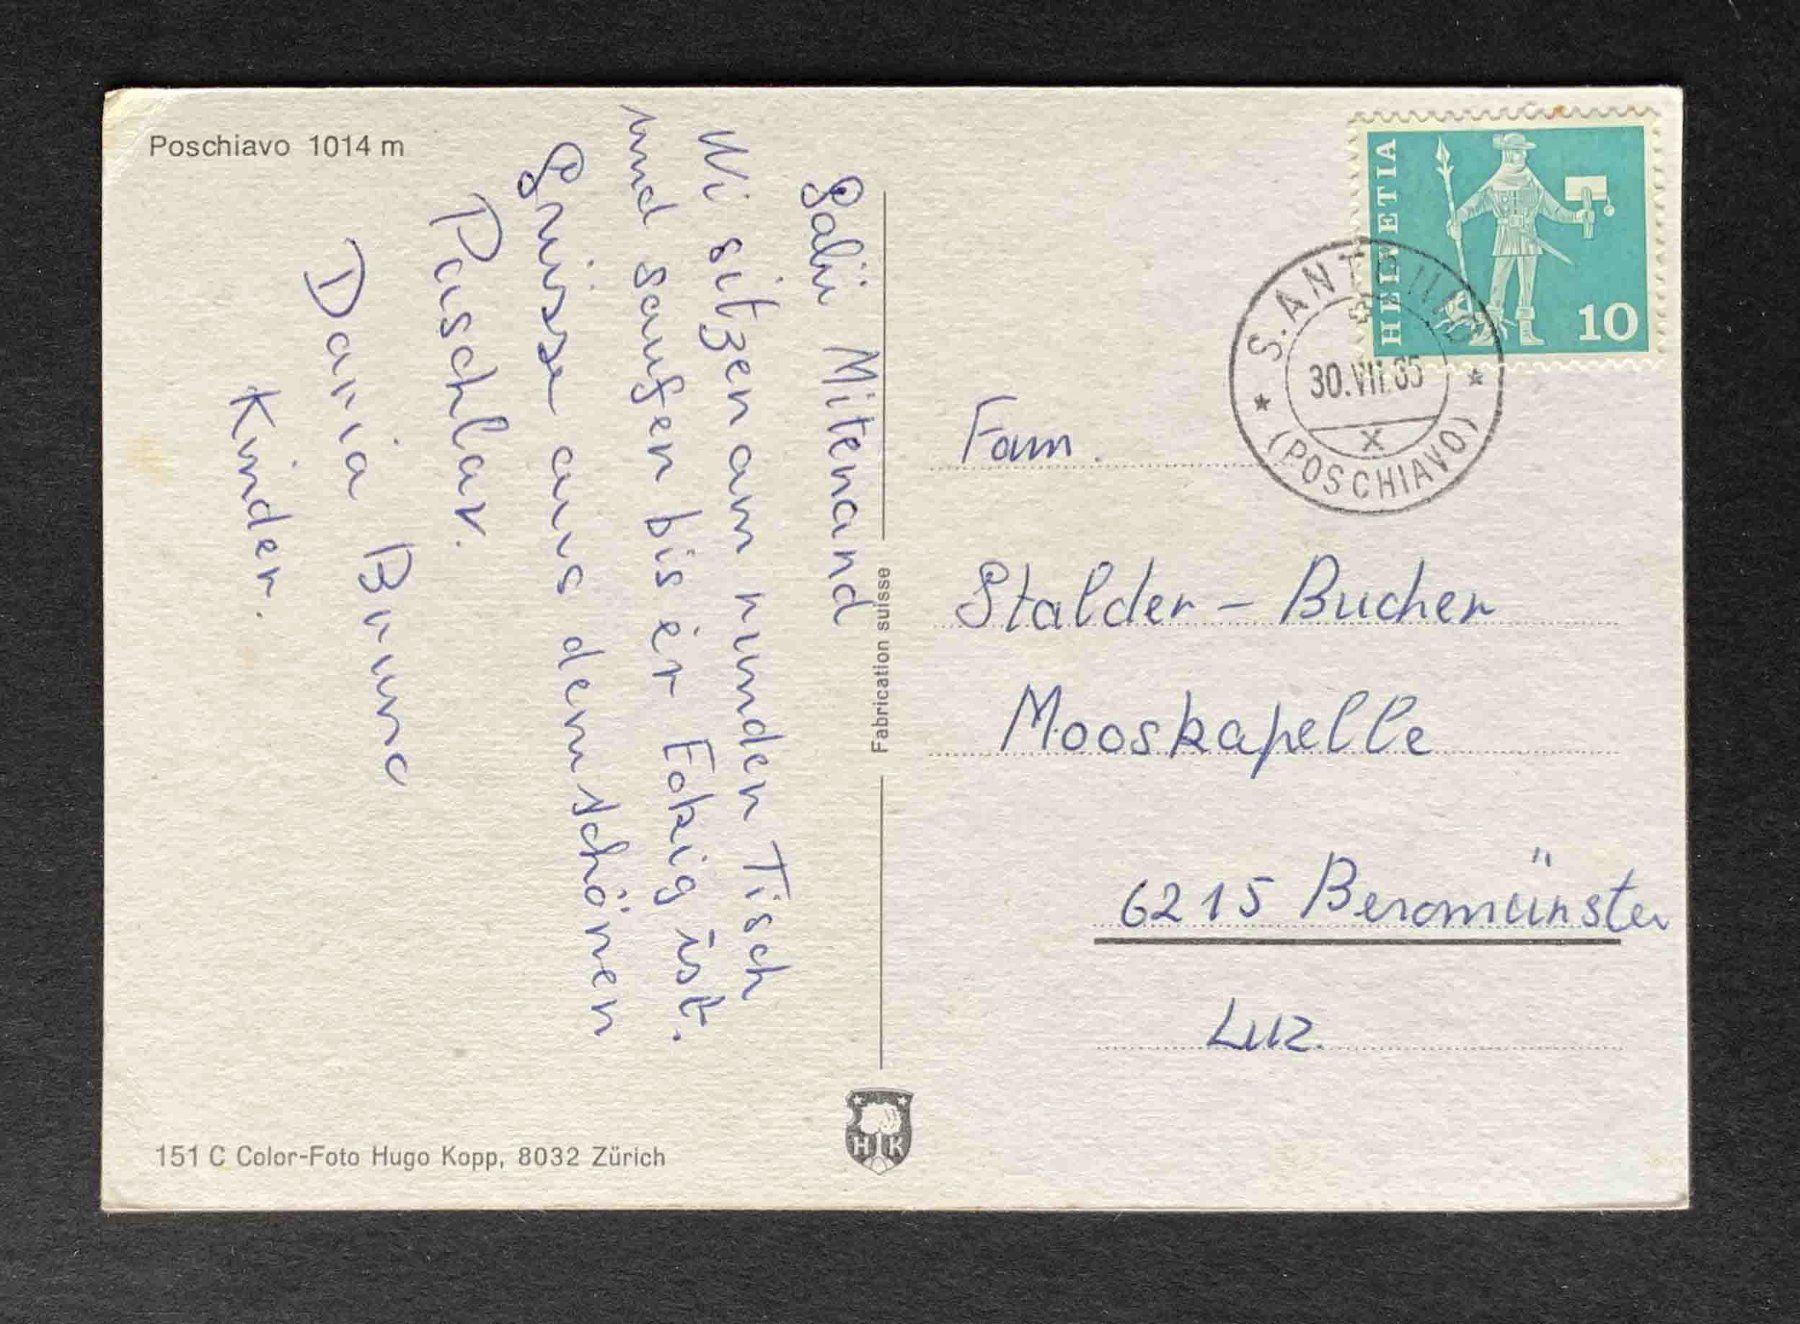 Poschiavo 1014 m
Salü Mitenand
Wi sitzen am runden Tisch
und saufen bis er Eckig ist.
Grüsse aus dem schönen
Puschlav.
Daria Bruno
Kinder.
151 C Color-Foto Hugo Kopp, 8032 Zürich
Fabrication suisse
HK
HELVETIA
10
S. ANTONIO
30.VII.65
X
(POSCHIAVO)
Fam.
Stalder-Bucher
Mooskapelle
6215 Beromünster
Luz.